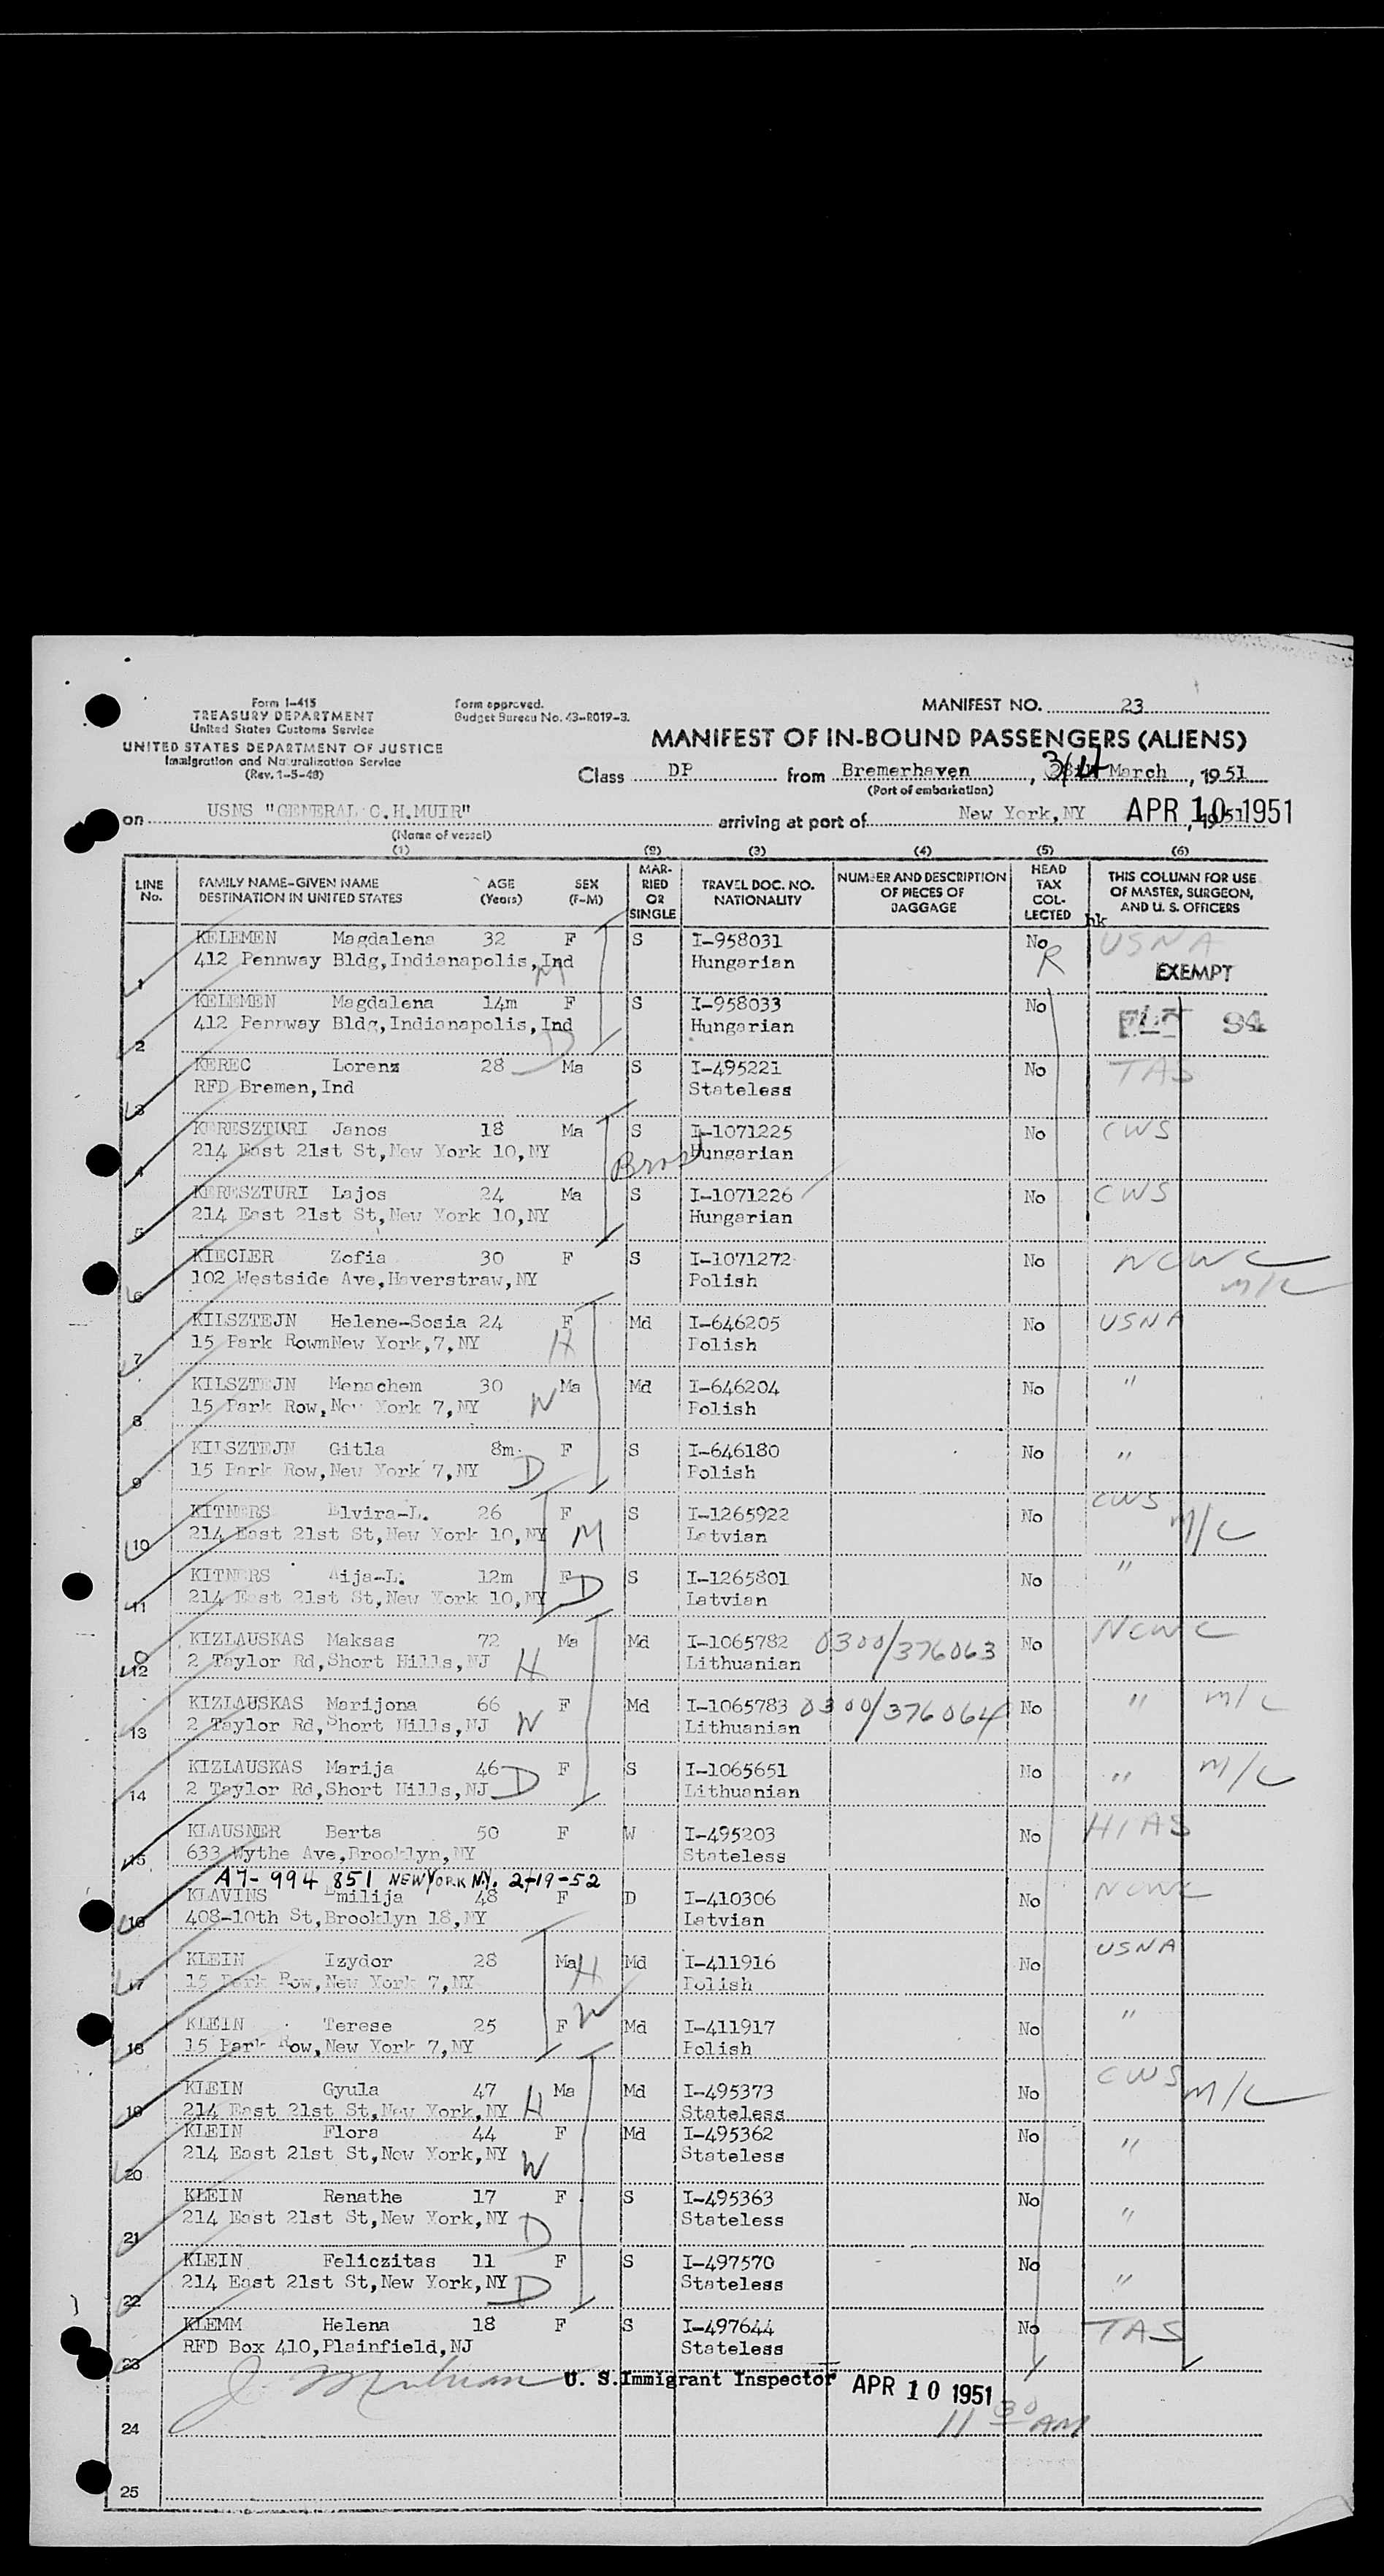 Form I-415
TREASURY DEPARTMENT
United States Customs Service
UNITED STATES DEPARTMENT OF JUSTICE
Immigration and Naturalization Service
(Rev. 1-5-48)
Form approved.
Budget Bureau No. 43-R019-3.
MANIFEST NO. 23
MANIFEST OF IN-BOUND PASSENGERS (ALIENS)
Class DP from Bremerhaven, March, 1951
(Port of embarkation)
on USNS "GENERAL C.H.MUIR" arriving at port of New York,NY APR 10 1951
(Name of vessel)
(1) (2) (3) (4) (5) (6)
LINE No. FAMILY NAME-GIVEN NAME DESTINATION IN UNITED STATES AGE (Years) SEX (F-M) MARRIED OR SINGLE TRAVEL DOC. NO. NATIONALITY NUMBER AND DESCRIPTION OF PIECES OF BAGGAGE HEAD TAX COLLECTED THIS COLUMN FOR USE OF MASTER, SURGEON, AND U. S. OFFICERS
hk
KELEMEN Magdalena 32 F S I-958031 No USNA
1 412 Pennway Bldg,Indianapolis,Ind M Hungarian R EXEMPT
KELEMEN Magdalena 14m F S I-958033 No
2 412 Pennway Bldg,Indianapolis,Ind D Hungarian 94
KEREC Lorenz 28 Ma S I-495221 No TAS
3 RFD Bremen,Ind Stateless
KERESZTURI Janos 18 Ma S I-1071225 No CWS
4 214 East 21st St,New York 10,NY Bros Hungarian
KERESZTURI Lajos 24 Ma S I-1071226 No CWS
5 214 East 21st St,New York 10,NY Hungarian
KIECLER Zofia 30 F S I-1071272 No NCWC
6 102 Westside Ave,Haverstraw,NY Polish M/L
KILSZTEJN Helene-Sosia 24 F Md I-646205 No USNA
7 15 Park RowmNew York,7,NY H Polish
KILSZTEJN Menachem 30 Ma Md I-646204 No "
8 15 Park Row,New York 7,NY W Polish
KILSZTEJN Gitla 8m F S I-646180 No "
9 15 Park Row,New York 7,NY D Polish
KITNERS Elvira-L. 26 F S I-1265922 No CWS
10 214 East 21st St,New York 10,NY M Latvian M/L
KITNERS Aija-L. 12m F S I-1265801 No "
11 214 East 21st St,New York 10,NY D Latvian
KIZLAUSKAS Maksas 72 Ma Md I-1065782 0300/376063 No NCWC
12 2 Taylor Rd,Short Hills,NJ H Lithuanian
KIZLAUSKAS Marijona 66 F Md I-1065783 0300/376064 No " M/L
13 2 Taylor Rd,Short Hills,NJ W Lithuanian
KIZLAUSKAS Marija 46 F S I-1065651 No " M/L
14 2 Taylor Rd,Short Hills,NJ D Lithuanian
KLAUSNER Berta 50 F W I-495203 No HIAS
15 633 Wythe Ave,Brooklyn,NY Stateless
A7-994 851 NEW YORK N.Y. 2-19-52
KLAVINS Emilija 48 F D I-410306 No NCWC
16 408-10th St,Brooklyn 18,NY Latvian
KLEIN Izydor 28 Ma H Md I-411916 No USNA
17 15 Park Row,New York 7,NY Polish
KLEIN Terese 25 F W Md I-411917 No "
18 15 Park Row,New York 7,NY Polish
KLEIN Gyula 47 Ma Md I-495373 No CWS M/L
19 214 East 21st St,New York,NY H Stateless
KLEIN Flora 44 F Md I-495362 No "
20 214 East 21st St,New York,NY W Stateless
KLEIN Renathe 17 F S I-495363 No "
21 214 East 21st St,New York,NY D Stateless
KLEIN Feliczitas 11 F S I-497570 No "
22 214 East 21st St,New York,NY D Stateless
KLEMM Helena 18 F S I-497644 No TAS
23 RFD Box 410,Plainfield,NJ Stateless
U. S.Immigrant Inspector APR 10 1951
11 30 AM
24
25